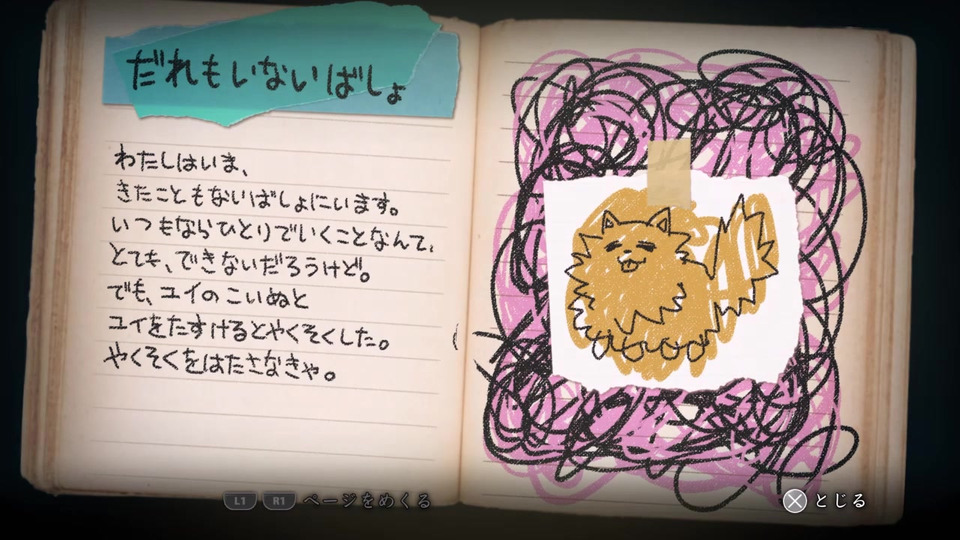 だれもいないばしょ
わたしはいま、
きたこともないばしょにいます。
いつもならひとりでいくことなんて、
とても、できないだろうけど。
でも、ユイのこいぬと
ユイをたすけるとやくそくした。
やくそくをはたさなきゃ。
L1 R1 ページをめくる
とじる